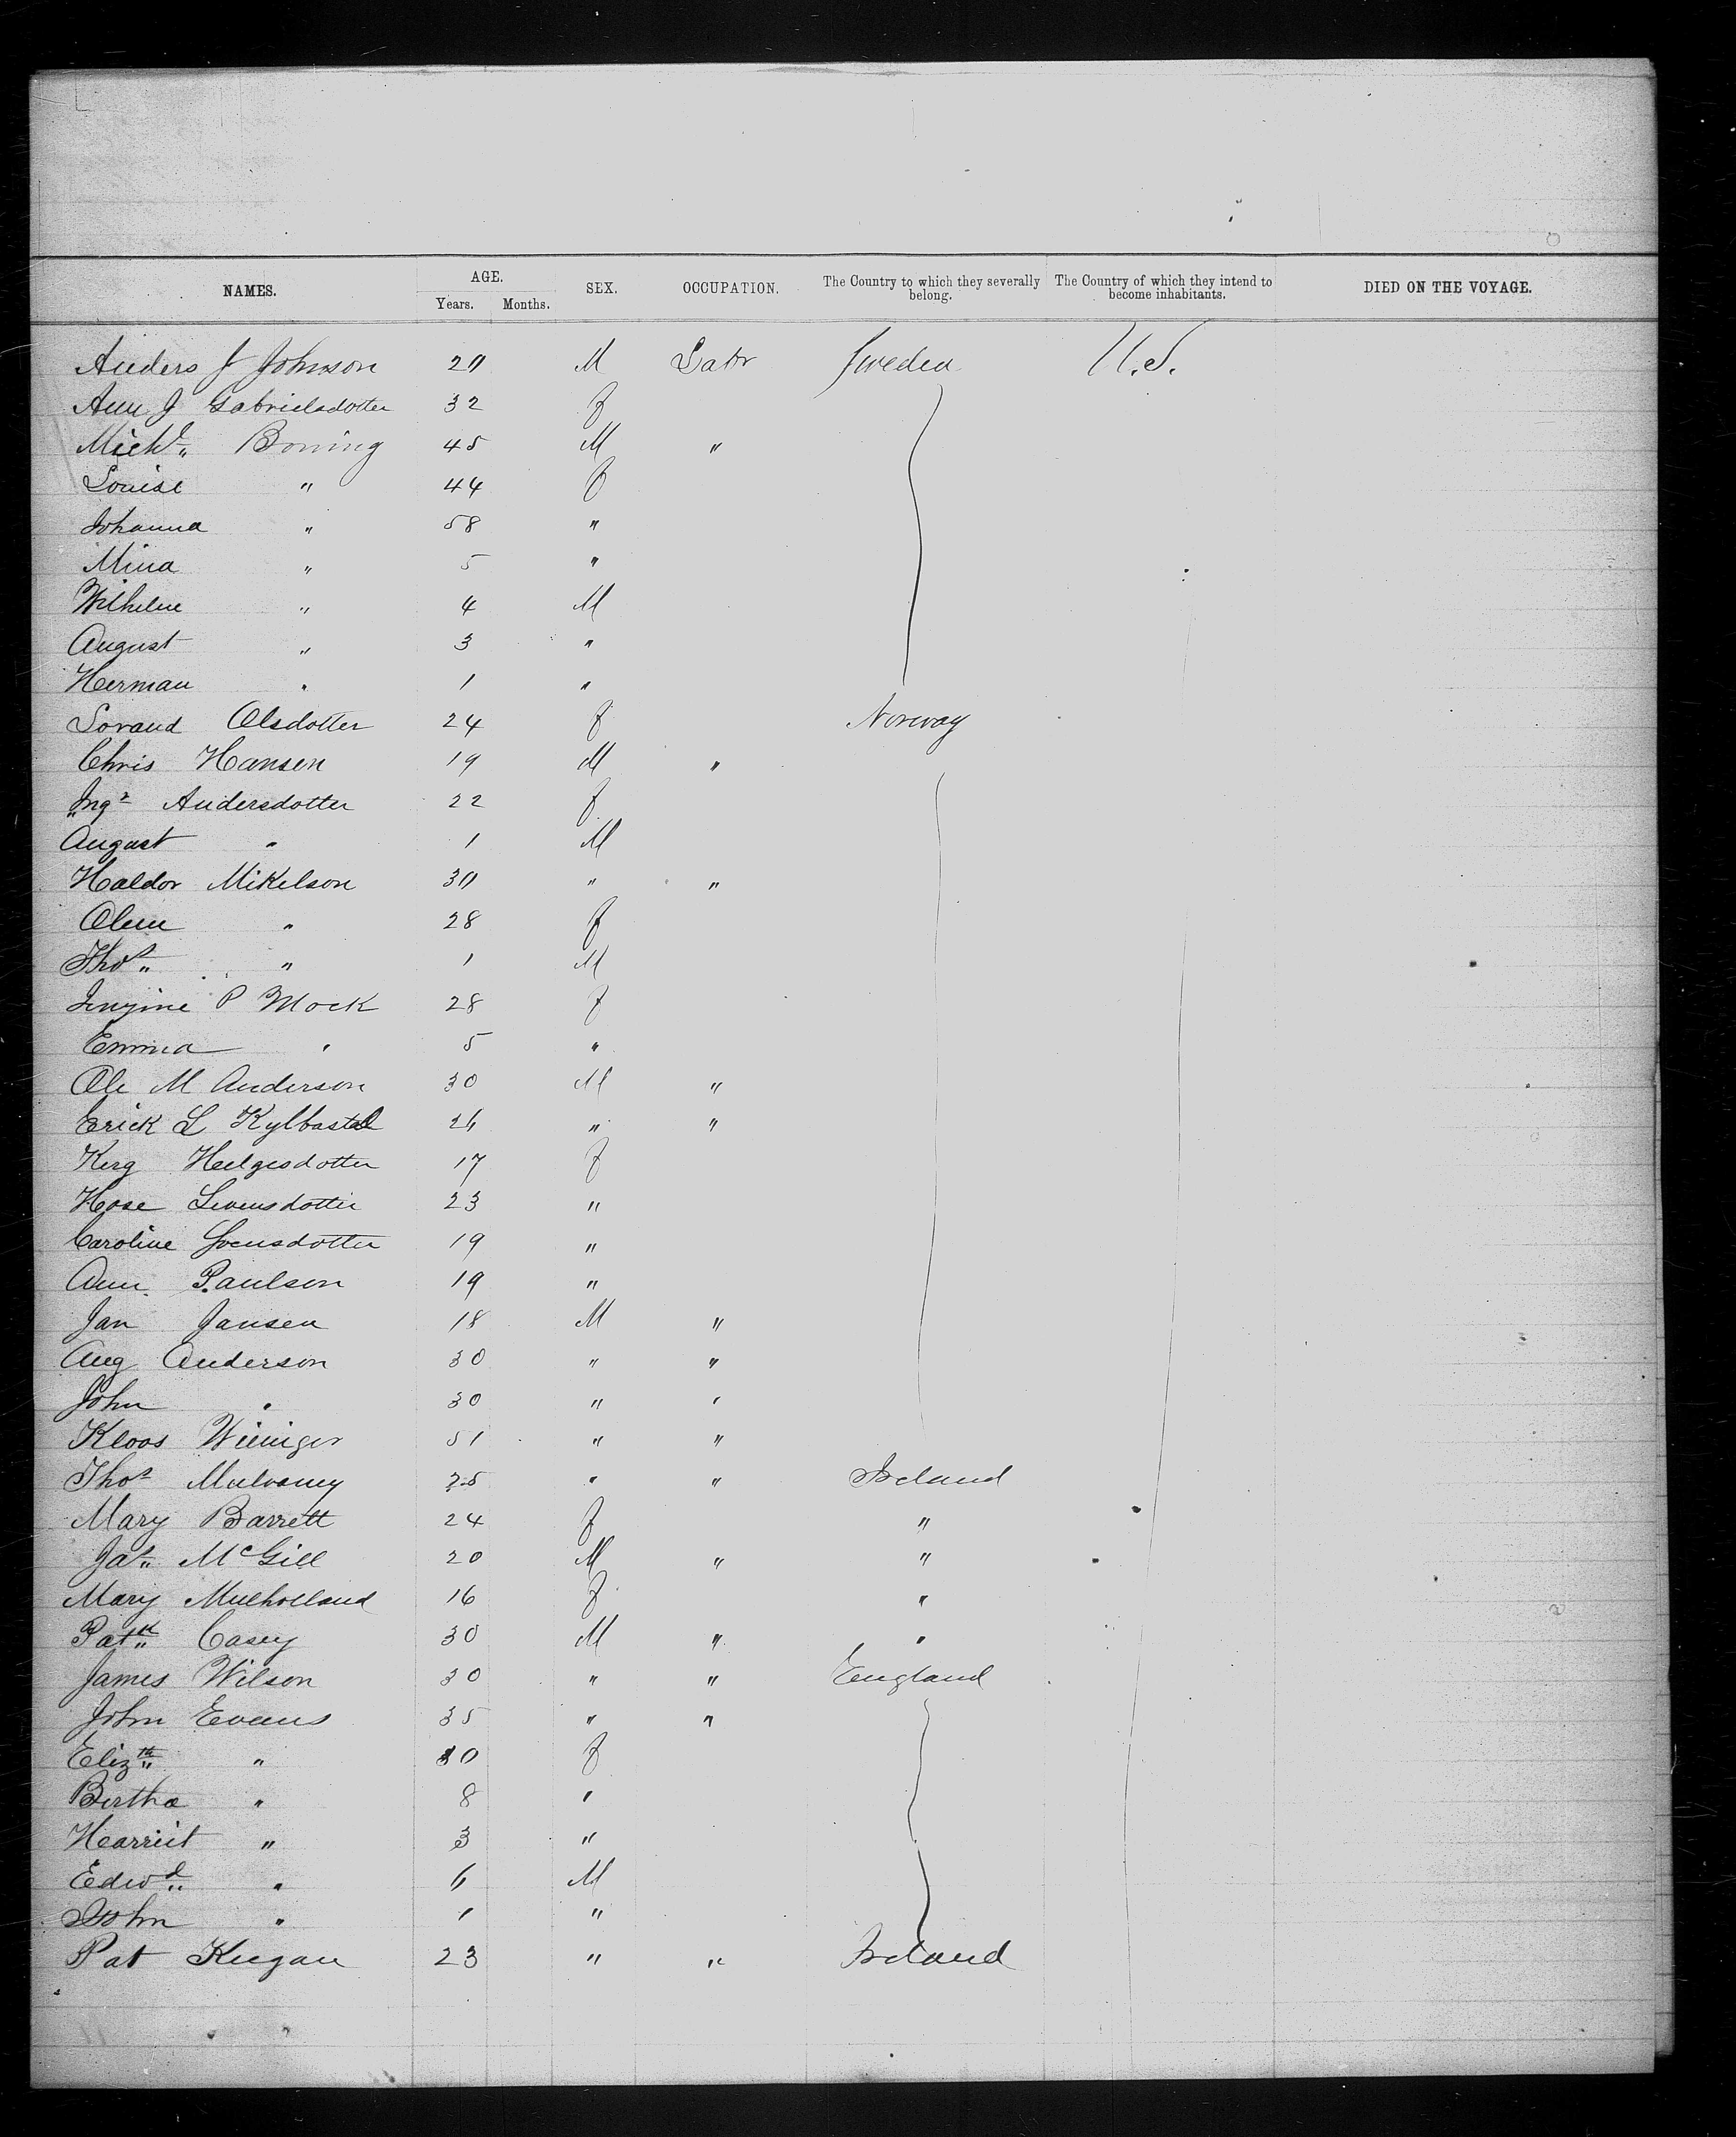 NAMES. AGE. SEX. OCCUPATION. The Country to which they severally belong. The Country of which they intend to become inhabitants. DIED ON THE VOYAGE.
Years. Months.
Anders J Johnson 20 M Labr Sweden U.S.
Ann J Gabrielsdotter 32 f
Michl Boning 45 M "
Louise " 44 f
Johanna " 58 "
Mina " 5 "
Wilhelm " 4 M
August " 3 "
Herman " 1 "
Sorand Olsdotter 24 f Norway
Chris Hansen 19 M "
Ingr Andersdotter 22 f
August " 1 M
Haldor Mikelson 30 " "
Olem " 28 f
Thos " 1 M
P Mock 28 f
Emma " 5 "
Ole M Anderson 30 M "
Erick L Kylbastad 26 " "
Kerg Helgesdotter 17 f
Hose 23 "
Caroline Svensdotter 19 "
Ann Paulson 19 "
Jan Jansen 18 M "
Aug Anderson 30 " "
John " 30 " "
Kloos Wieniger 51 " "
Thos Mulvaney 25 " " Ireland
Mary Barrett 24 f "
Jas McGill 20 M " "
Mary Mulholland 16 f "
Patk Casey 30 M " "
James Wilson 30 " " England
John Evans 35 " "
Elizth " 30 f
Bertha " 8 "
Harriet " 3 "
Edwd " 6 M
John " 1 "
Pat Keegan 23 " " Ireland